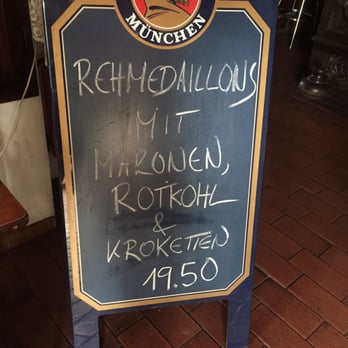 MÜNCHEN
REHMEDAILLONS
MIT
MARONEN,
ROTKOHL
&
KROKETTEN
19.50